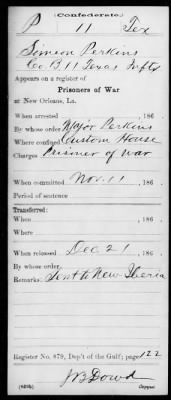 (Confederate.)
P 11 Tex
Simeon Perkins
Co. B 11 Texas Inf'ty
Appears on a register of
Prisoners of War
at New Orleans, La.
When arrested , 186 .
By whose order Major Perkins
Where confined Custom House
Charges Prisoner of War
When committed Nov. 11 , 186 .
Period of sentence
Transferred:
When , 186 .
Where
When released Dec 21 , 186 .
By whose order
Remarks: Sent to New Iberia
Register No. 879, Dep't of the Gulf; page 122
J B Dowd
Copyist.